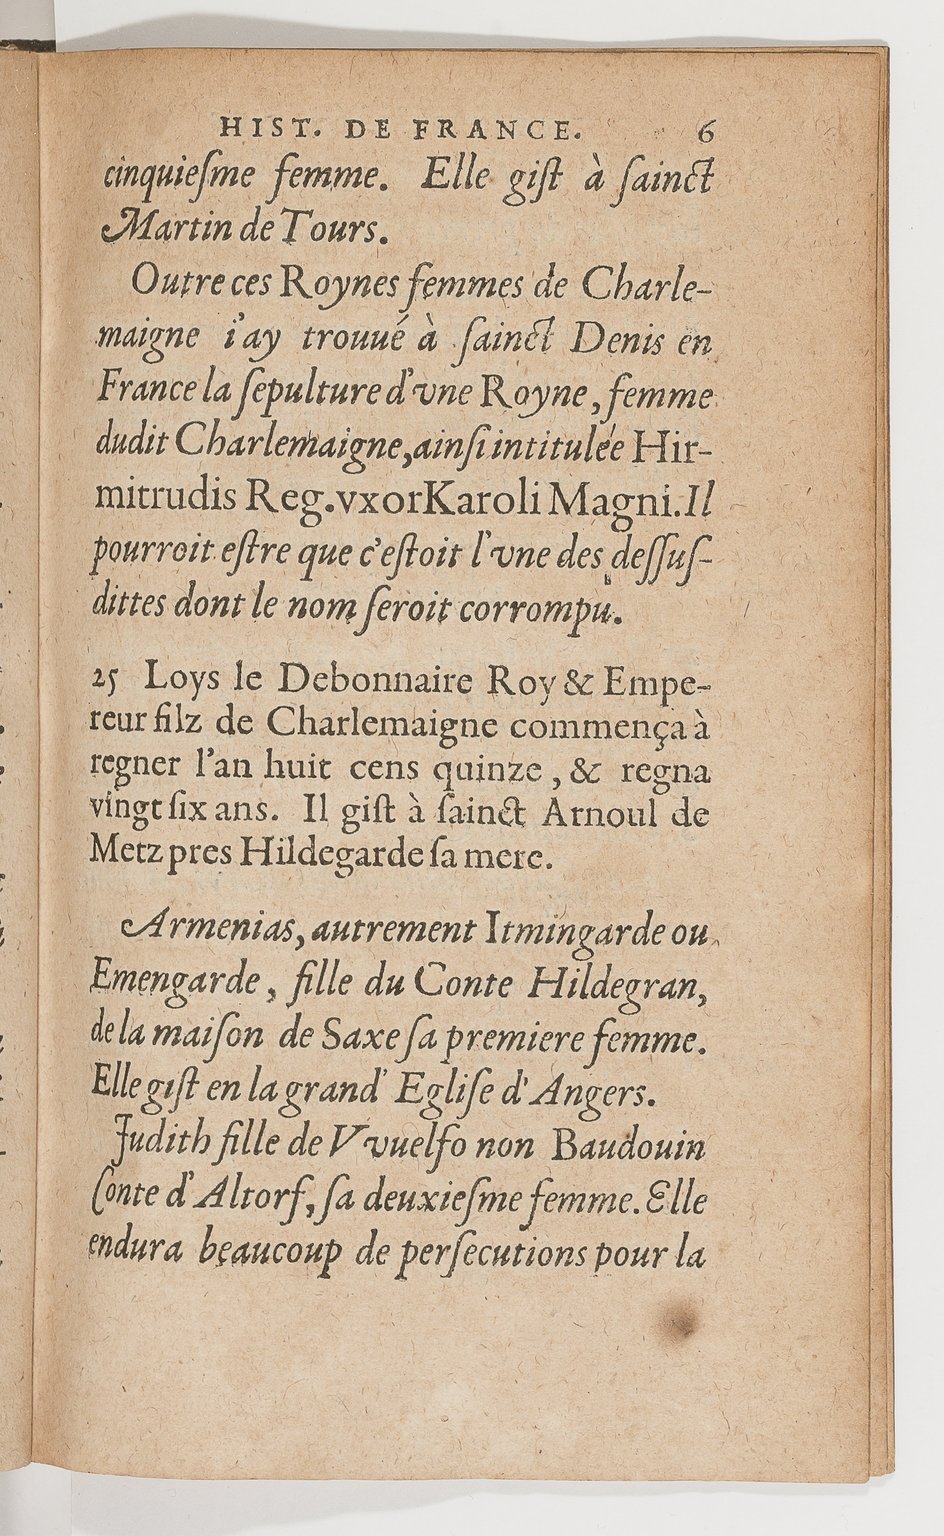 HIST. DE FRANCE. 6
cinquieſme femme. Elle giſt à ſainct
Martin de Tours.
Outre ces Roynes femmes de Charle-
maigne i'ay trouué à ſainct Denis en
France la ſepulture d'vne Royne, femme
dudit Charlemaigne, ainſi intitulée Hir-
mitrudis Reg. vxor Karoli Magni. Il
pourroit eſtre que c'eſtoit l'vne des deſſuſ-
dittes dont le nom ſeroit corrompu.
25 Loys le Debonnaire Roy & Empe-
reur filz de Charlemaigne commença à
regner l'an huit cens quinze, & regna
vingt ſix ans. Il giſt à ſainct Arnoul de
Metz pres Hildegarde ſa mere.
Armenias, autrement Itmingarde ou
Emengarde, fille du Conte Hildegran,
de la maiſon de Saxe ſa premiere femme.
Elle giſt en la grand' Egliſe d'Angers.
Judith fille de Vvuelfo non Baudouin
Conte d'Altorf, ſa deuxieſme femme. Elle
endura beaucoup de perſecutions pour la